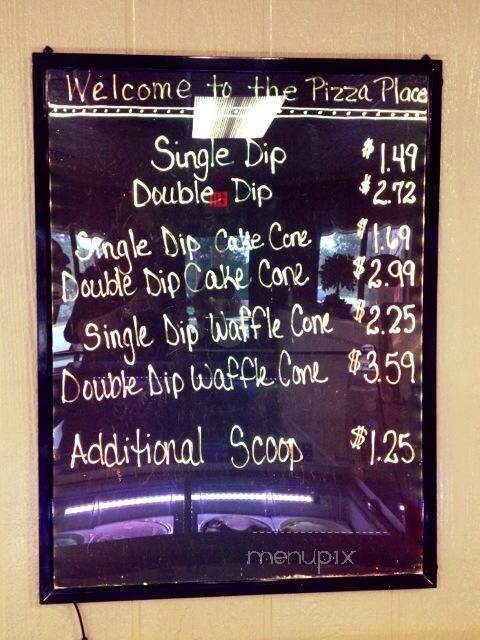 Welcome to the Pizza Place
Single Dip $1.49
Double Dip $2.72
Single Dip Cake Cone $1.69
Double Dip Cake Cone $2.99
Single Dip Waffle Cone $2.25
Double Dip Waffle Cone $3.59
Additional Scoop $1.25
menupix